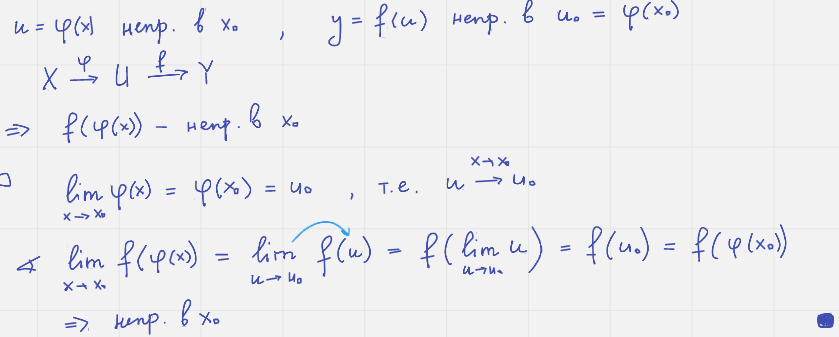 u = φ(x) непр. в x₀ , y = f(u) непр. в u₀ = φ(x₀)
X →^φ U →^f Y
⇒ f(φ(x)) – непр. в x₀
□ lim_{x→x₀} φ(x) = φ(x₀) = u₀ , т.е. u →^{x→x₀} u₀
∢ lim_{x→x₀} f(φ(x)) = lim_{u→u₀} f(u) = f(lim_{u→u₀} u) = f(u₀) = f(φ(x₀))
⇒ непр. в x₀ ■